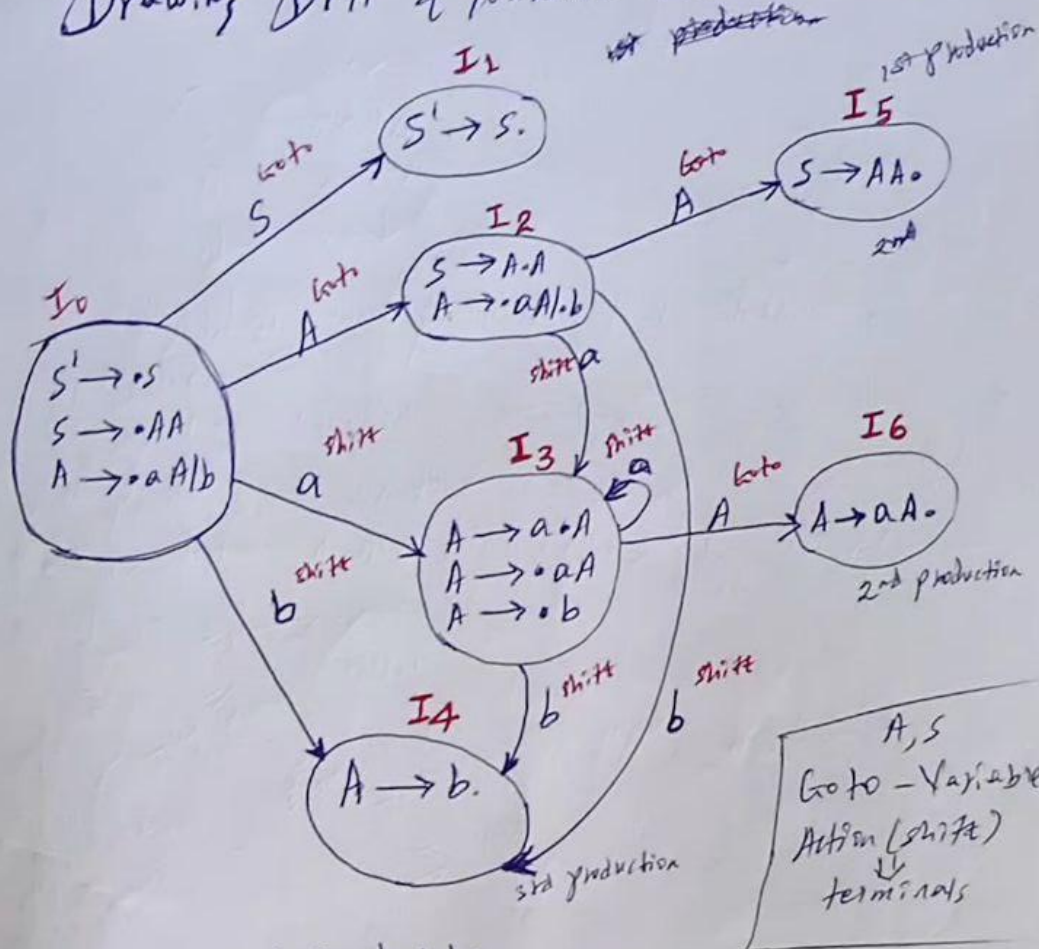 Drawing
I1
S' → S.
1st production
I5
S → AA.
2nd
Goto
S
Goto
A
I2
S → A.A
A → .aA/.b
I0
S' → .S
S → .AA
A → .aA/b
Goto
A
shift a
shift
a
I3
A → a.A
A → .aA
A → .b
shift
a
Goto
A
I6
A → aA.
2nd production
shift
b
b shift
shift
b
I4
A → b.
3rd production
A, S
Goto - Variable
Action (shift)
⇓
terminals